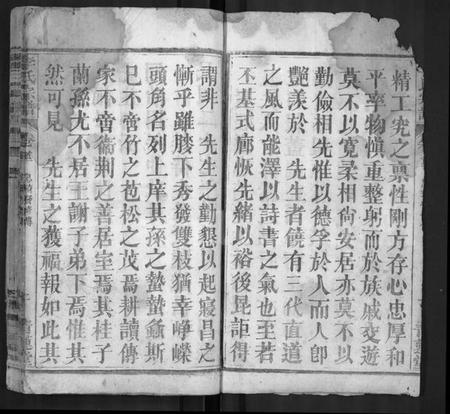 精工究之稟性剛方存心忠厚和
平率物慎重整躬而於族戚交遊
莫不以寬柔相尚安居亦莫不以
勤儉相先惟以德孚於人而人卽
艷羨於 董先生者饒有三代直道
之風而能澤以詩書之氣也至若
丕基式廓恢先緒以裕後昆詎得
謂非 先生之勤懇以起寢昌之
漸乎雖膝下秀發雙枝猶幸崢嶸
頭角名列上庠其孫之蟄蟄螽斯
巳不啻竹之苞松之茂焉耕讀傳
家不啻德荆之善居室焉其桂子
蘭孫尤不居王謝子弟下焉惟其
然可見 先生之獲福報如此其